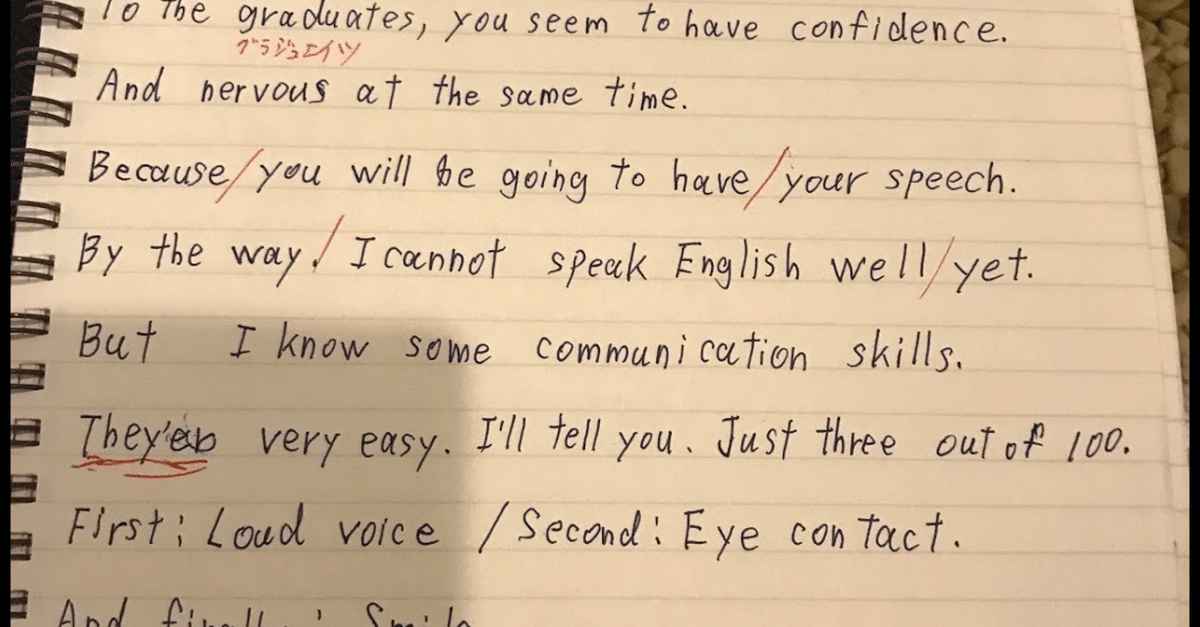 To the graduates, you seem to have confidence.
グラジュエイツ
And nervous at the same time.
Because/you will be going to have/your speech.
By the way,/I cannot speak English well/yet.
But I know some communication skills.
very easy. I'll tell you. Just three out of 100.
First: Loud voice / Second: Eye contact.
And finally: Smile